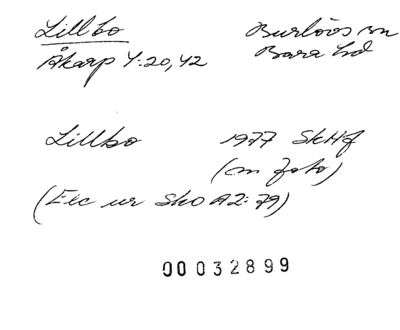 Lillbo Burlövs sn
Åkarp 4:20,42 Bara hd
Lillbo 1977 SkHf
(m foto)
(Exc ur SkO A2:79)
00032899